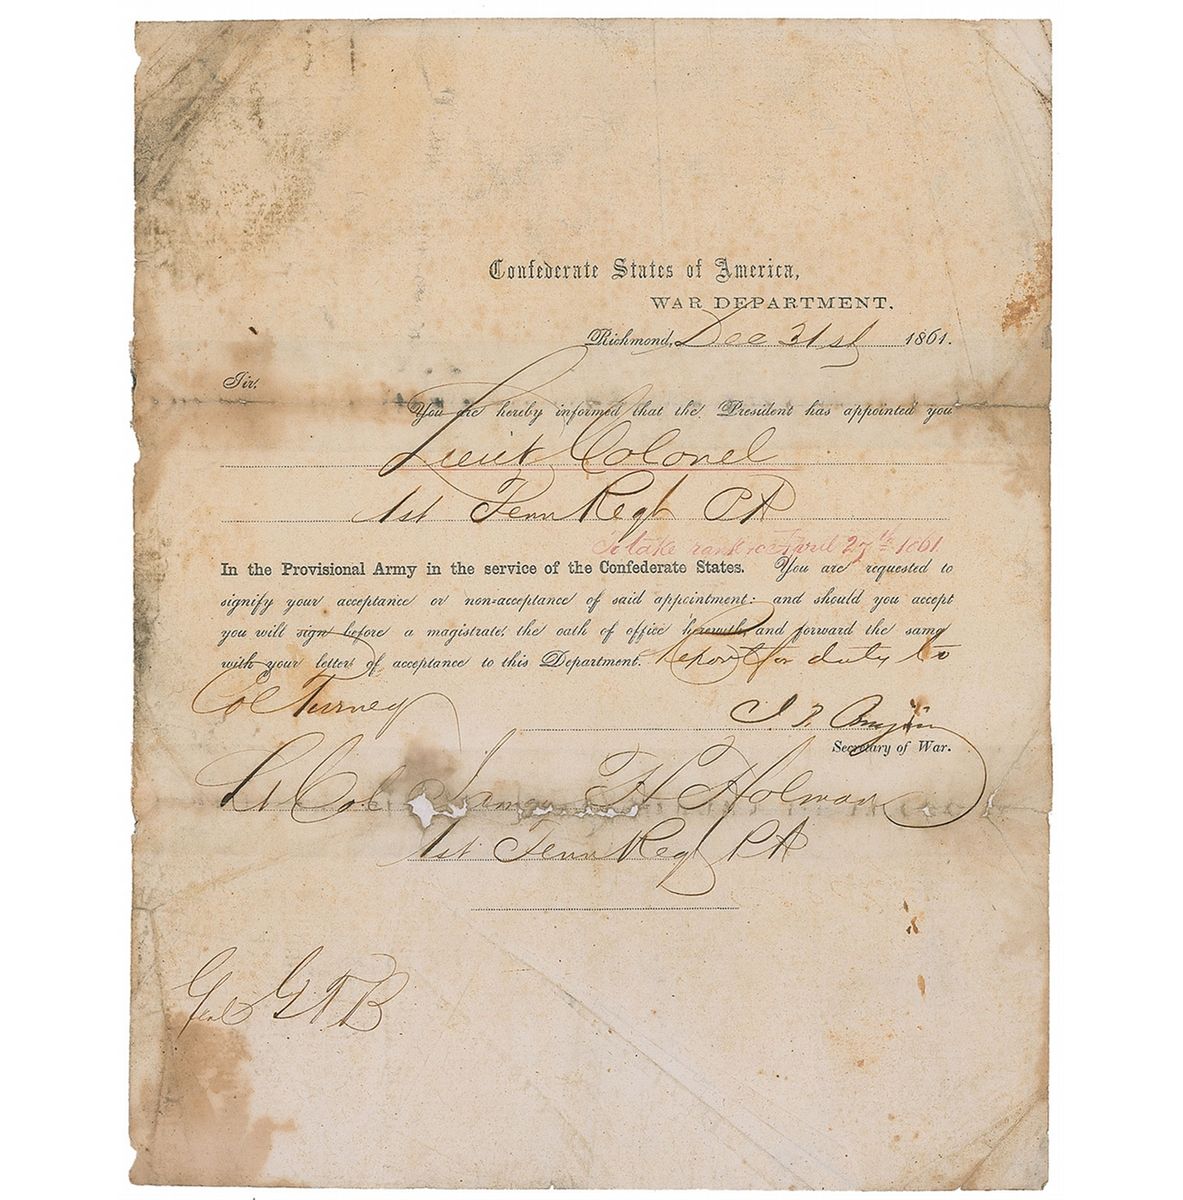 Confederate States of America,
WAR DEPARTMENT,
Richmond, Dec 31st 1861.
Sir:
You are hereby informed that the President has appointed you
Lieut Colonel
1st Tenn Regt PA
To take rank April 27th 1861.
In the Provisional Army in the service of the Confederate States. You are requested to
signify your acceptance or non-acceptance of said appointment: and should you accept
you will sign before a magistrate, the oath of office herewith, and forward the same
with your letter of acceptance to this Department. Report for duty to
Col Turney
J P Benjamin
Secretary of War.
Lt Col James H Holman
1st Tenn Regt PA